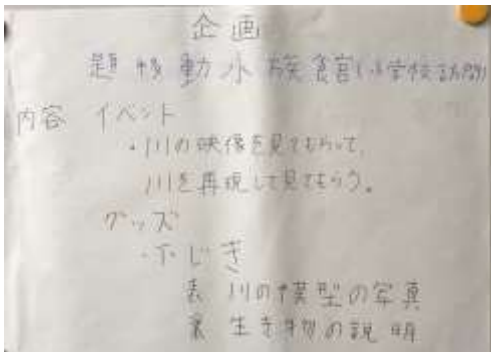 企画
題 移動水族館(小学校訪問)
内容 イベント
・川の映像を見てもらって、
川を再現して見てもらう。
グッズ
・下じき
表 川の模型の写真
裏 生き物の説明